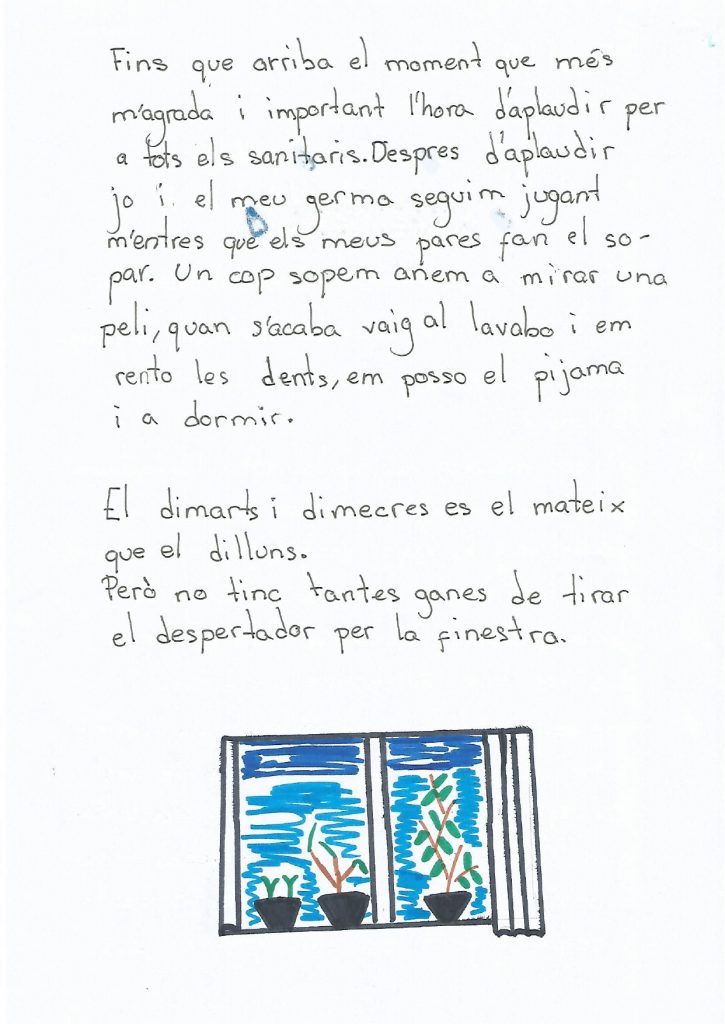 Fins que arriba el moment que més
m'agrada i important l'hora d'aplaudir per
a tots els sanitaris. Despres d'aplaudir
jo i el meu germa seguim jugant
m'entres que els meus pares fan el so-
par. Un cop sopem anem a mirar una
peli, quan s'acaba vaig al lavabo i em
rento les dents, em posso el pijama
i a dormir.
El dimarts i dimecres es el mateix
que el dilluns.
Però no tinc tantes ganes de tirar
el despertador per la finestra.